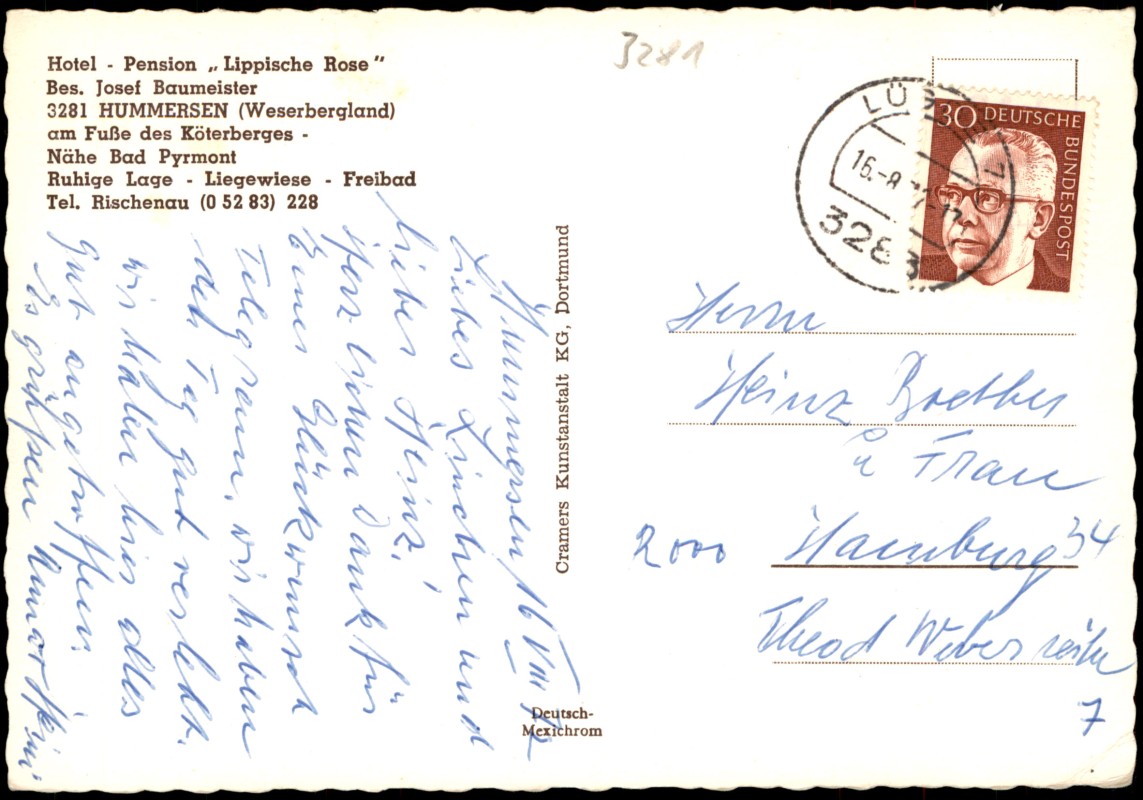 Hotel - Pension „Lippische Rose"
Bes. Josef Baumeister
3281 HUMMERSEN (Weserbergland)
am Fuße des Köterberges -
Nähe Bad Pyrmont
Ruhige Lage - Liegewiese - Freibad
Tel. Rischenau (0 52 83) 228
3281
30 DEUTSCHE
BUNDESPOST
16.-8.
3283
Hummersen 16 VIII 72
Liebes Linchen und
lieber Heinz!
Herzlichen Dank für
Euer Glückwunsch
Telegramm, wir haben
den Tag gut verlebt.
wir haben hier alles
gut angetroffen.
Es grüßen
Cramers Kunstanstalt KG, Dortmund
Deutsch-
Mexichrom
Herrn
Heinz
u Frau
2000 Hamburg 34
Theod Weber
7